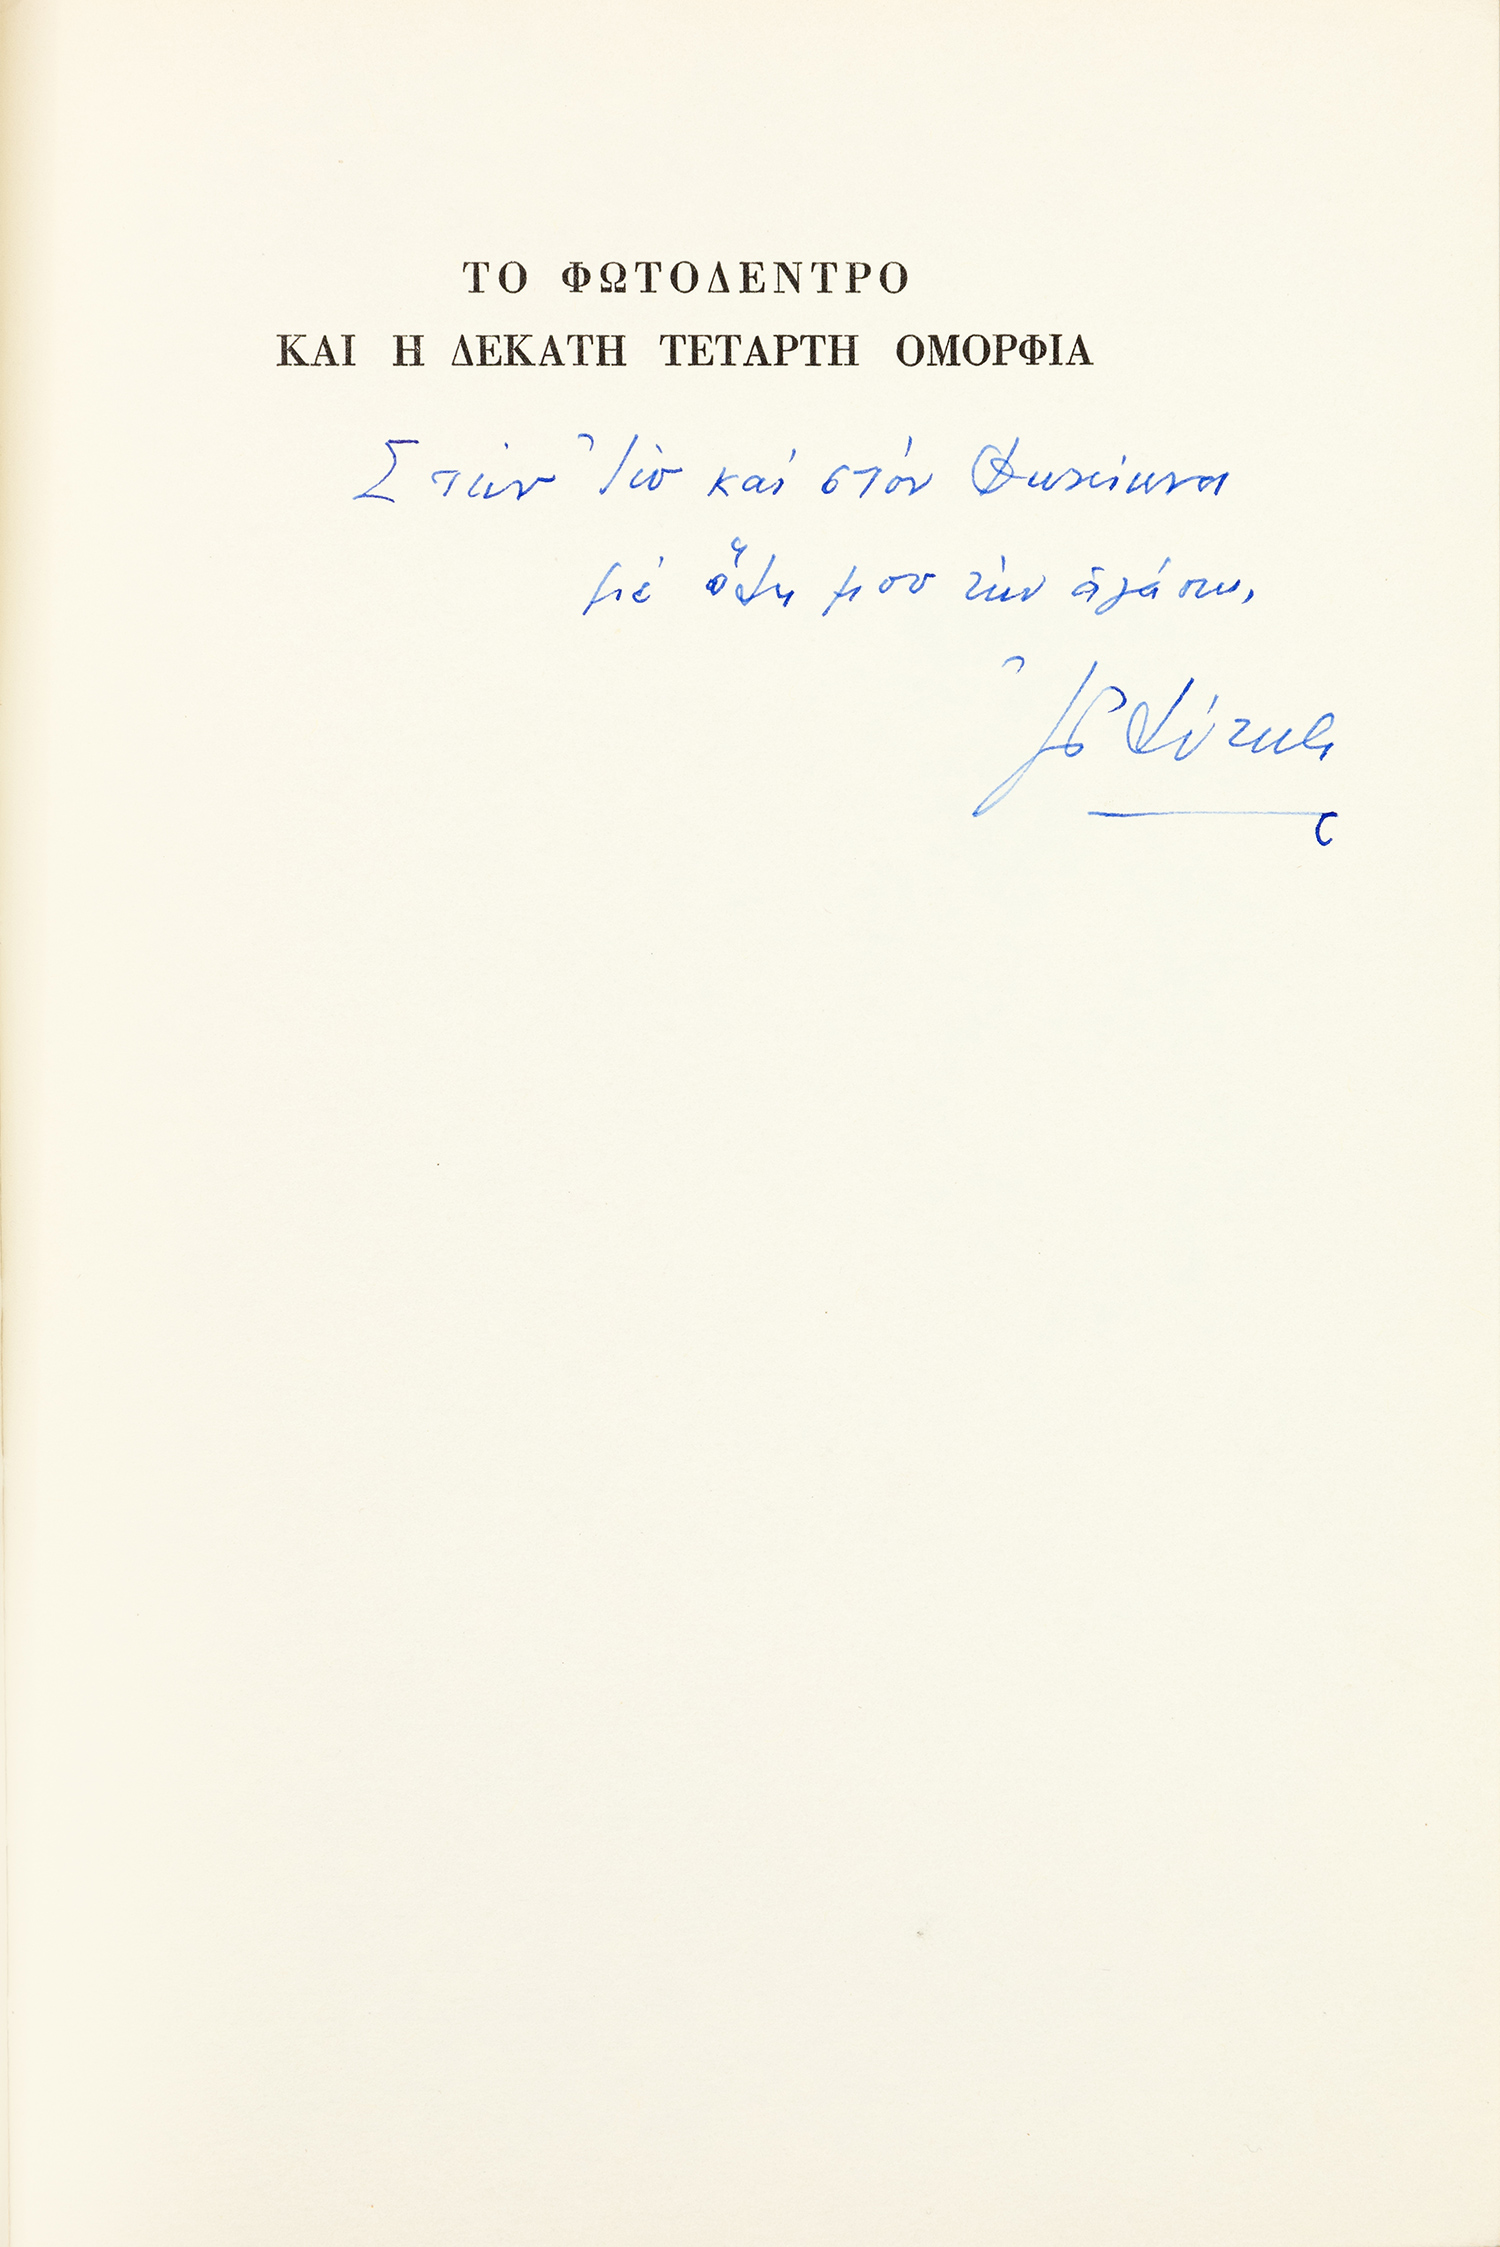 ΤΟ ΦΩΤΟΔΕΝΤΡΟ
ΚΑΙ Η ΔΕΚΑΤΗ ΤΕΤΑΡΤΗ ΟΜΟΡΦΙΑ
Στὴν καὶ στὸν
μὲ ὅλη μου τὴν ἀγάπη,
Ἐλύτης